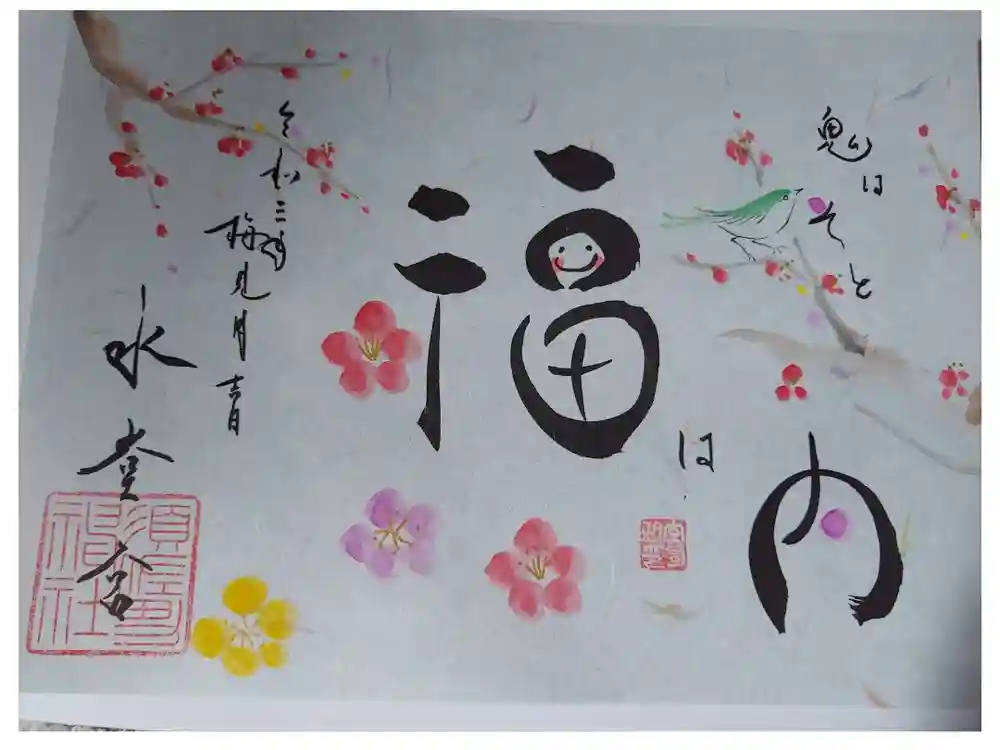 鬼は
そと
福は内
令和三年
梅見月吉日
水堂
須佐男
神社